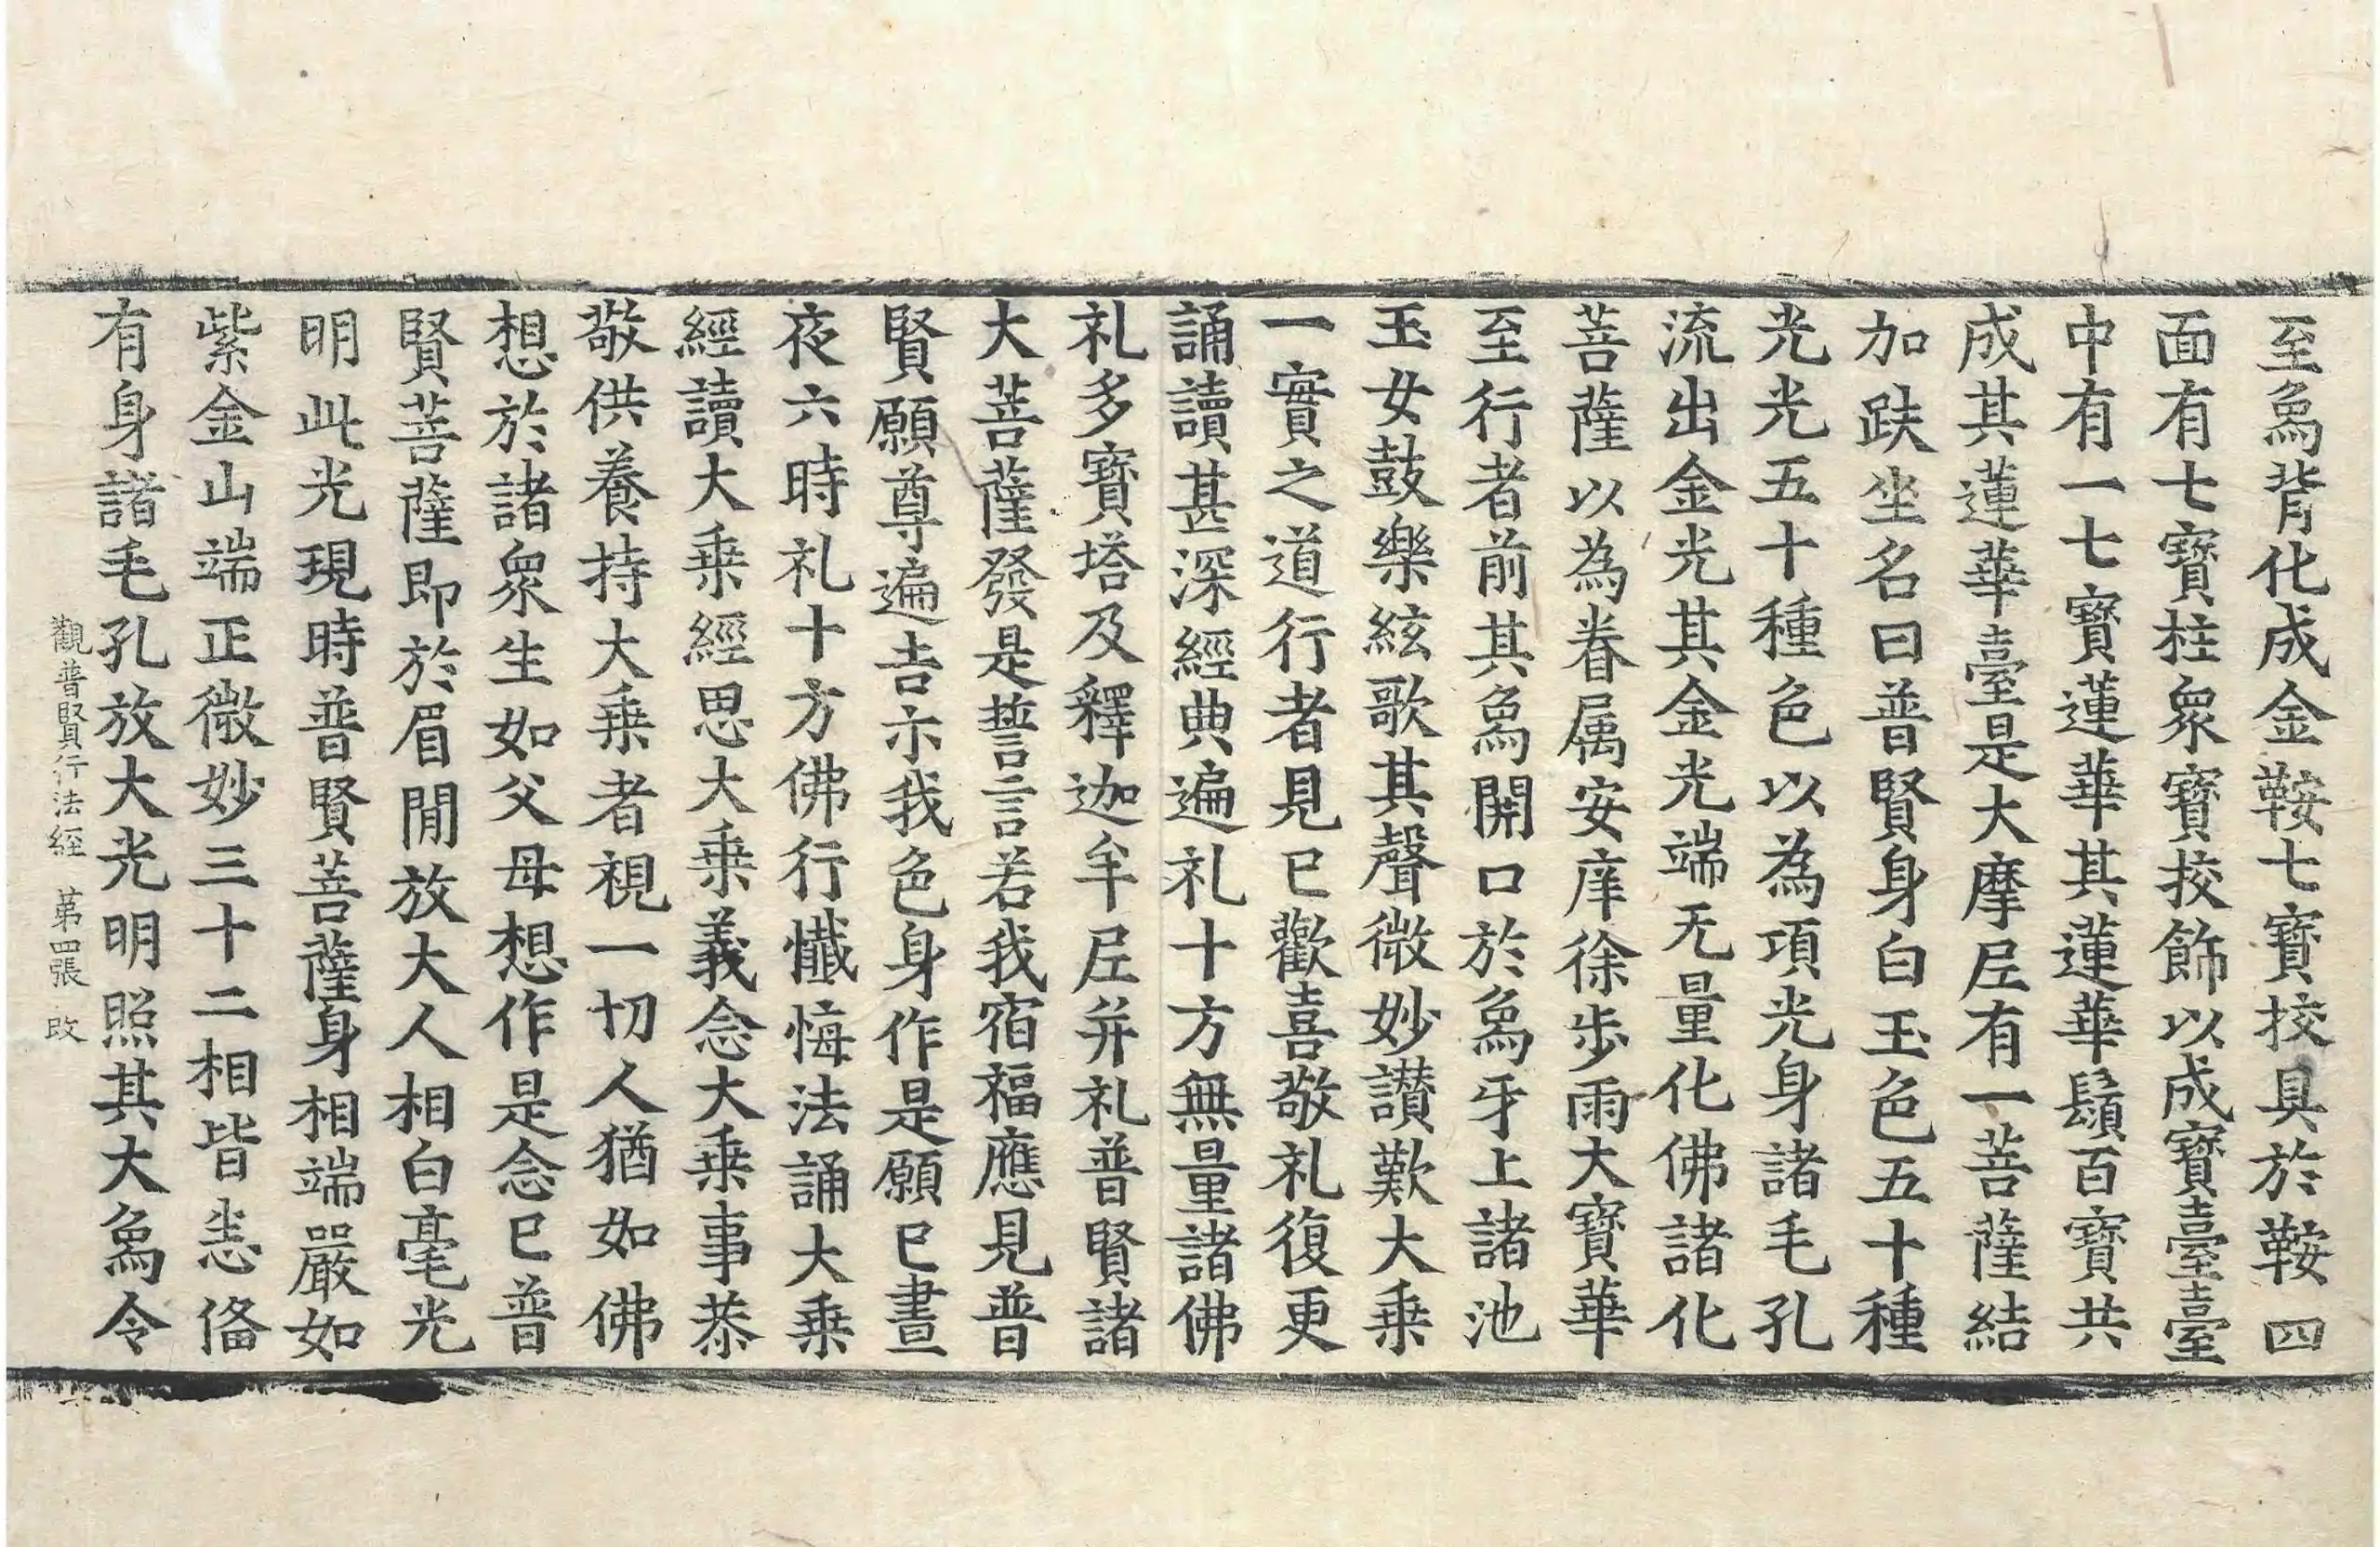 至烏背化成金鞍七寶挍具於鞍四
面有七寶柱衆寶挍飾以成寶臺臺
中有一七寶蓮華其蓮華鬚百寶共
成其蓮華臺是大摩尼有一菩薩結
加趺坐名曰普賢身白玉色五十種
光光五十種色以為項光身諸毛孔
流出金光其金光端无量化佛諸化
菩薩以為眷属安庠徐步雨大寶華
至行者前其烏開口於烏牙上諸池
玉女鼓樂絃歌其聲微妙讃歎大乗
一實之道行者見已歡喜敬礼復更
誦讀甚深經典遍礼十方無量諸佛
礼多寶塔及釋迦牟尼并礼普賢諸
大菩薩發是誓言若我宿福應見普
賢願尊遍吉示我色身作是願已晝
夜六時礼十方佛行懺悔法誦大乗
經讀大乗經思大乗義念大乗事恭
敬供養持大乗者視一切人猶如佛
想於諸衆生如父母想作是念已普
賢菩薩即於眉閒放大人相白毫光
明此光現時普賢菩薩身相端嚴如
紫金山端正微妙三十二相皆悉俻
有身諸毛孔放大光明照其大烏令
觀普賢行法經 苐四張 改